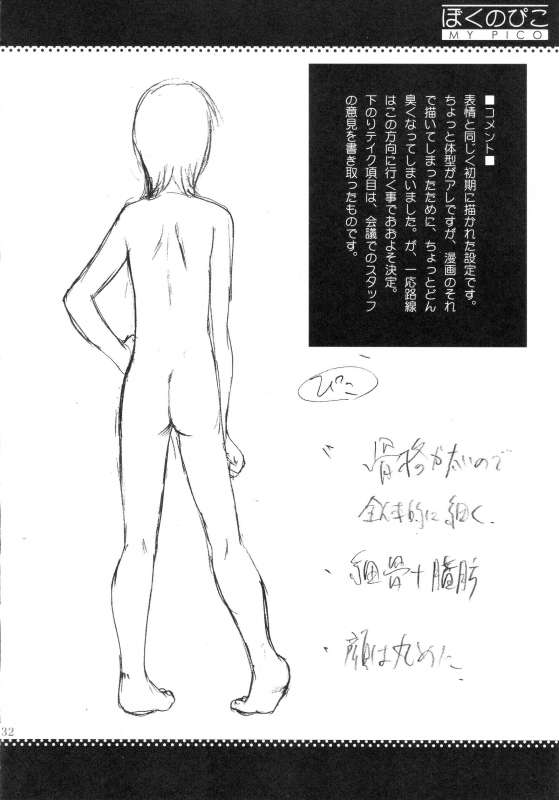 ぼくのぴこ
MY PICO
■コメント■
表情と同じく初期に描かれた設定です。
ちょっと体型がアレですが、漫画のそれ
で描いてしまったために、ちょっとどん
臭くなってしまいました。が、一応路線
はこの方向に行く事でおおよそ決定。
下のリテイク項目は、会議でのスタッフ
の意見を書き取ったものです。
ぴこ
骨格が太いので
全体的に細く、
細骨+脂肪
顔は丸めに
32